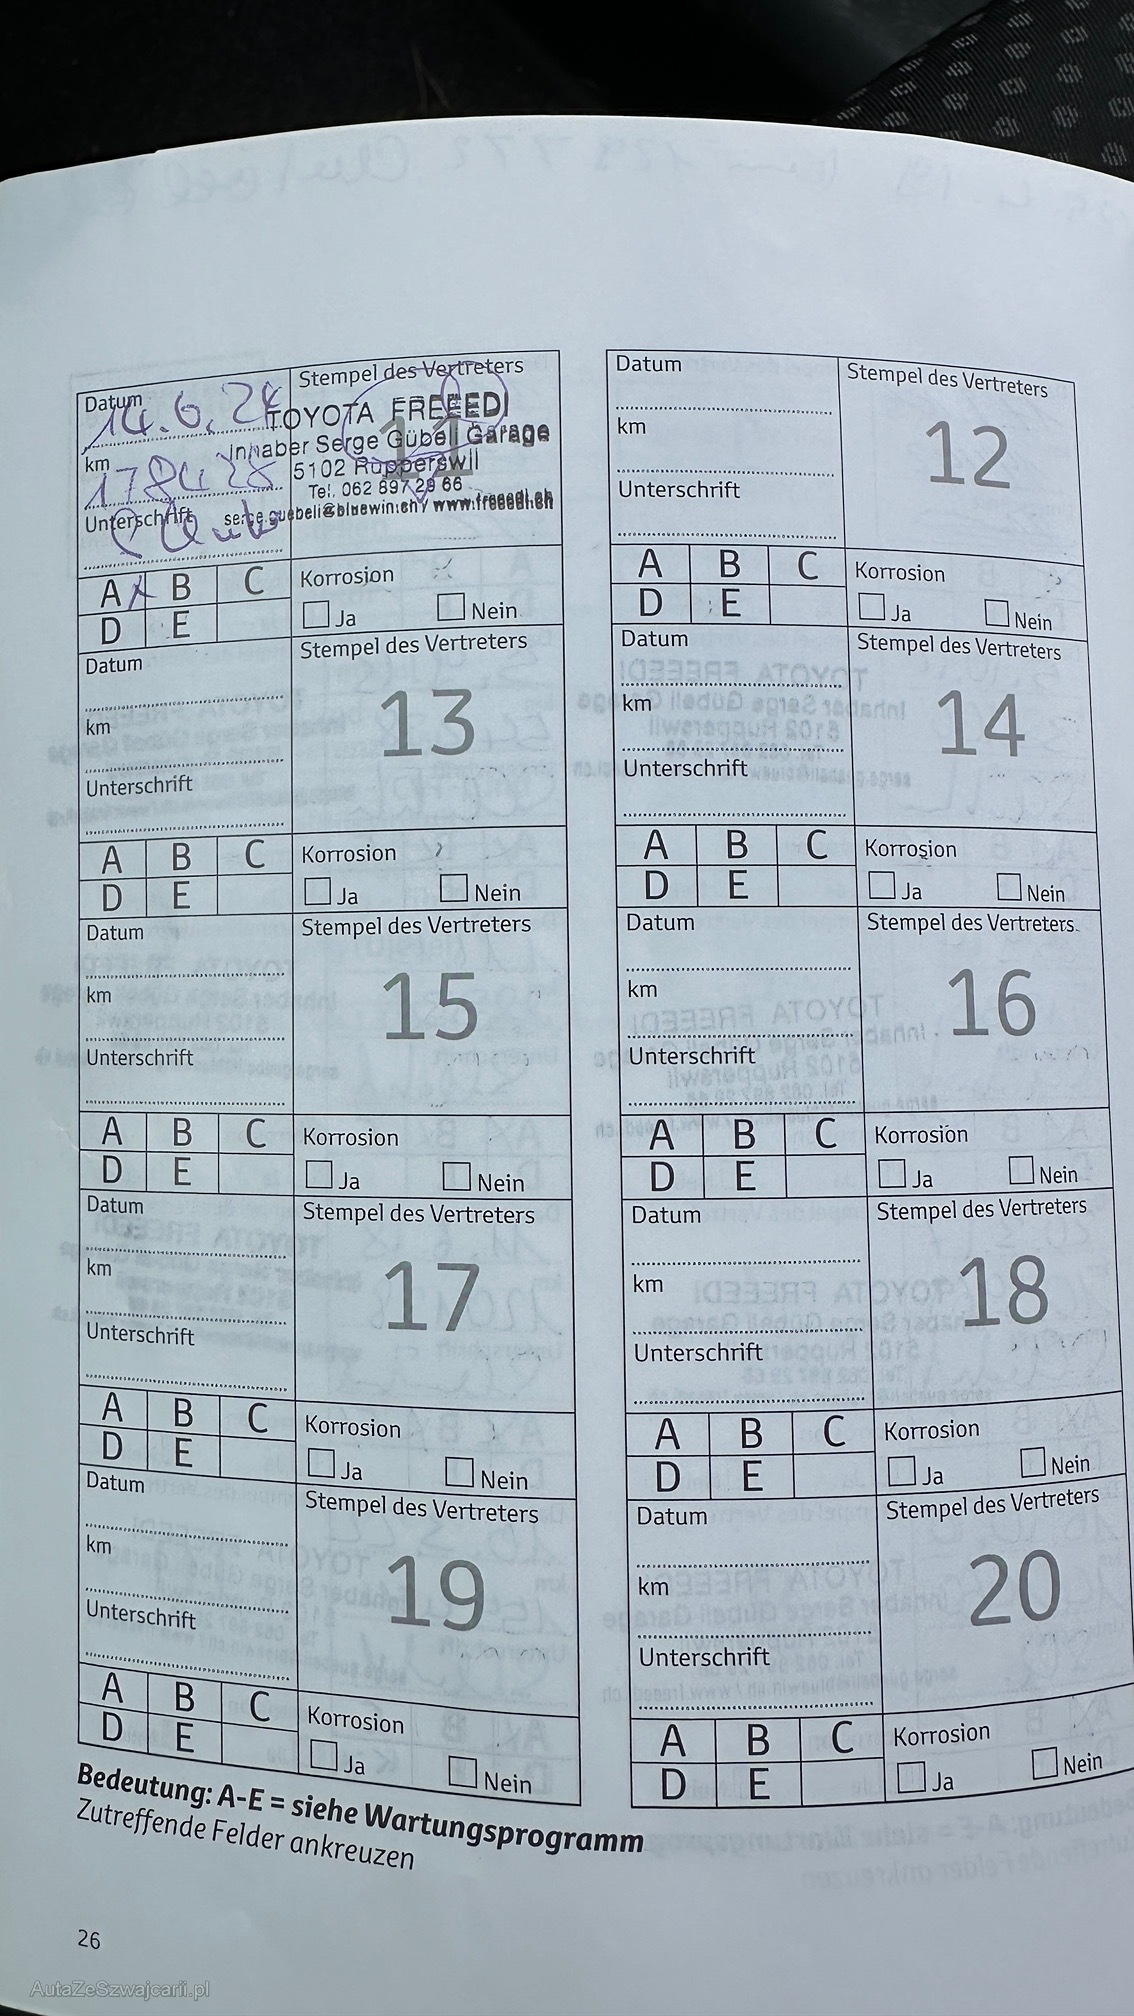 Datum
Stempel des Vertreters
14.6.24
TOYOTA FREEEDI
11
Inhaber Serge Gübeli Garage
km
5102 Rupperswil
178428
Tel. 062 897 29 66
Unterschrift
serge.guebeli@bluewin.ch / www.freeedi.ch
A x B C
Korrosion
D E
Ja Nein
Datum
Stempel des Vertreters
12
km
Unterschrift
A B C
Korrosion
D E
Ja Nein
Datum
Stempel des Vertreters
13
km
Unterschrift
A B C
Korrosion
D E
Ja Nein
Datum
Stempel des Vertreters
14
km
Unterschrift
A B C
Korrosion
D E
Ja Nein
Datum
Stempel des Vertreters
15
km
Unterschrift
A B C
Korrosion
D E
Ja Nein
Datum
Stempel des Vertreters
16
km
Unterschrift
A B C
Korrosion
D E
Ja Nein
Datum
Stempel des Vertreters
17
km
Unterschrift
A B C
Korrosion
D E
Ja Nein
Datum
Stempel des Vertreters
18
km
Unterschrift
A B C
Korrosion
D E
Ja Nein
Datum
Stempel des Vertreters
19
km
Unterschrift
A B C
Korrosion
D E
Ja Nein
Datum
Stempel des Vertreters
20
km
Unterschrift
A B C
Korrosion
D E
Ja Nein
Bedeutung: A-E = siehe Wartungsprogramm
Zutreffende Felder ankreuzen
26
AutaZeSzwajcarii.pl